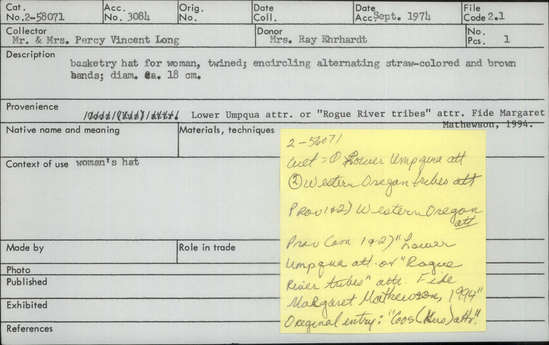 Cat. No. 2-58071 Acc. No. 3084 Orig. No. Date Coll. Date Acc. Sept. 1974 File Code 2.1
Collector Mr. & Mrs. Percy Vincent Long Donor Mrs. Ray Ehrhardt No. Pcs. 1
Description basketry hat for woman, twined; encircling alternating straw-colored and brown
bands; diam. ca. 18 cm.
Provenience /Coos/(Kus)/attr. Lower Umpqua attr. or "Rogue River tribes" attr. Fide Margaret
Mathewson, 1994.
Native name and meaning Materials, techniques
Context of use woman's hat
Made by Role in trade
Photo
Published
Exhibited
References
2-56071
Cult = ① Lower Umpqua att
② Western Oregon tribes att
Prov 1&2) Western Oregon
att
Prov Com 1&2) "Lower
Umpqua att. or "Rogue
River tribes" attr. Fide
Margaret Mathewson, 1994"
Original entry: "Coos (Kus) attr."